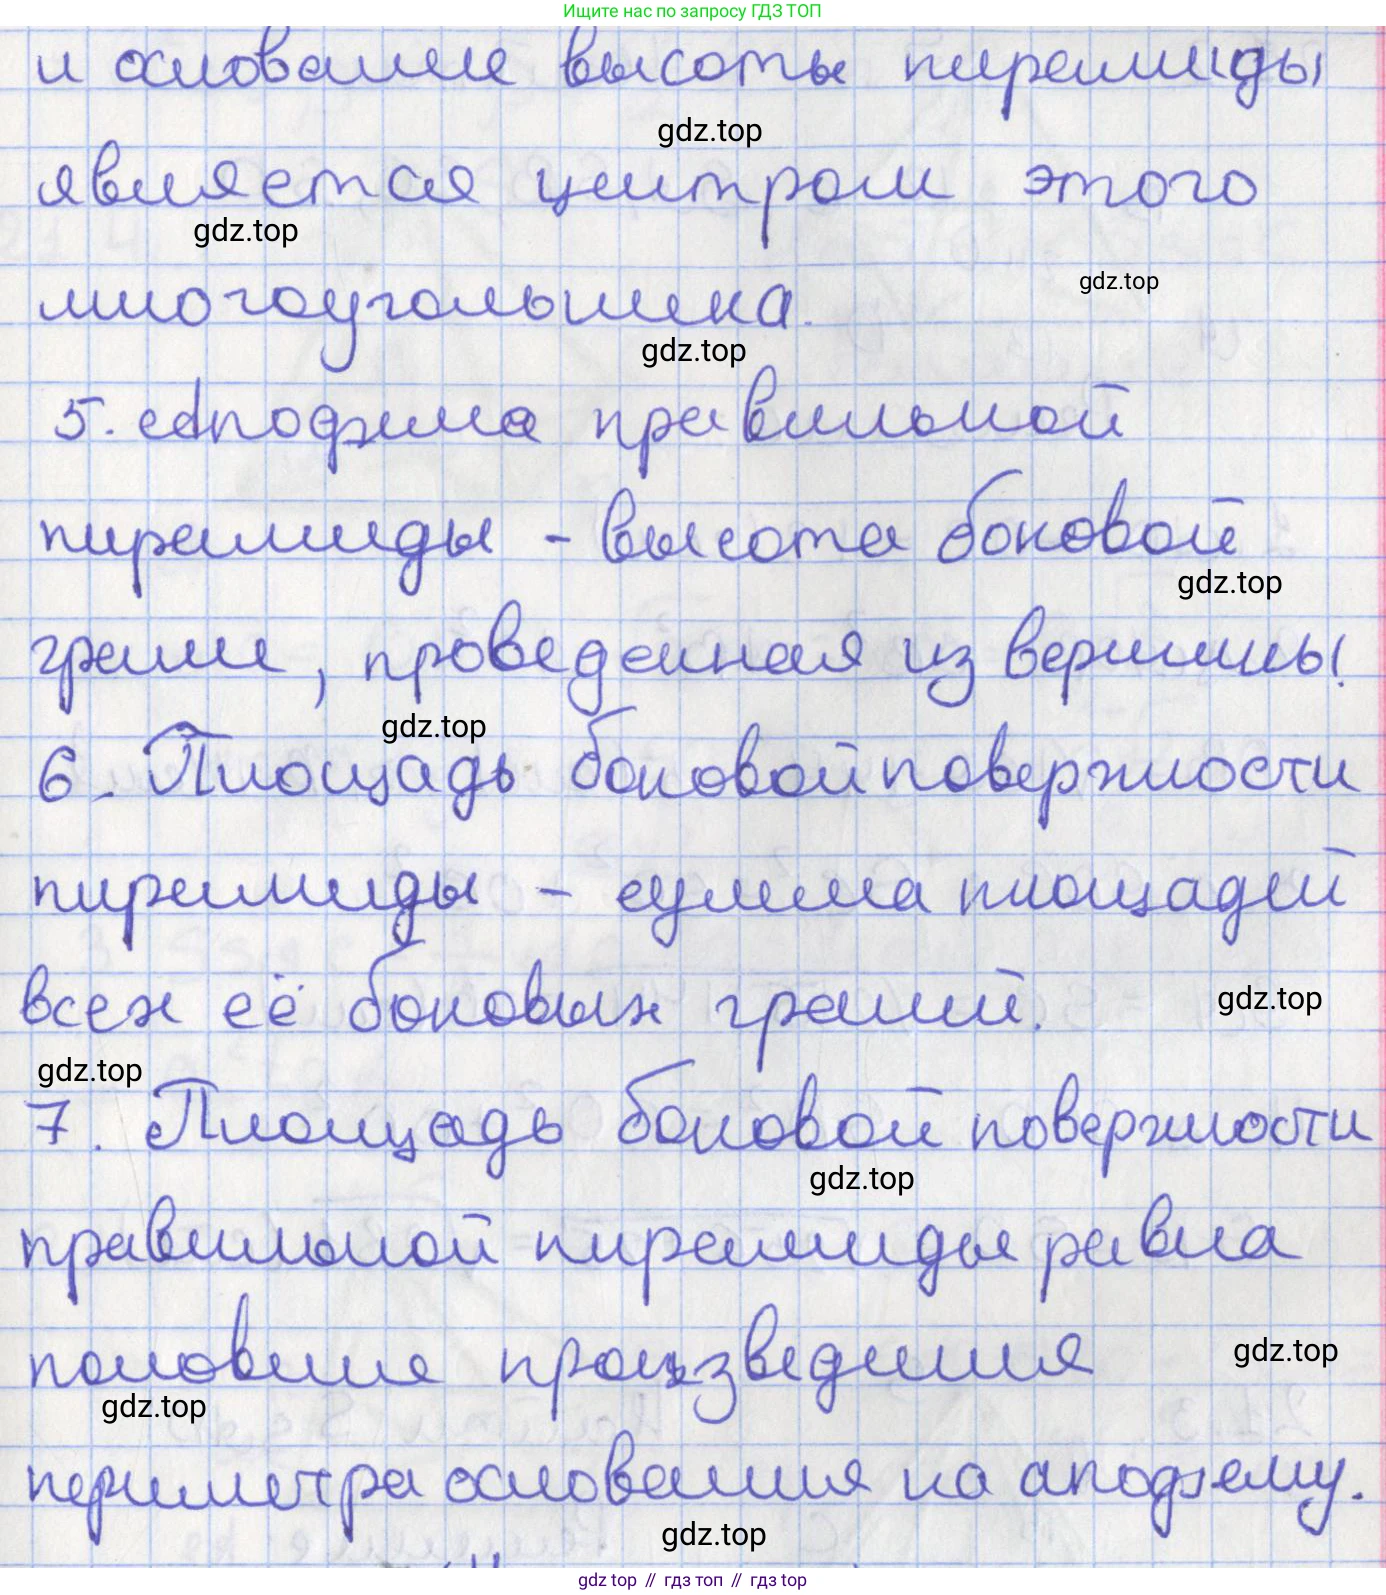 Ищите нас по запросу ГДЗ ТОП
и основание высоты пирамиды
gdz.top
является центром этого
gdz.top
gdz.top
многоугольника.
gdz.top
5. Апофема правильной
пирамиды - высота боковой
gdz.top
грани, проведенная из вершины.
gdz.top
6. Площадь боковой поверхности
пирамиды - сумма площадей
всех её боковых граней.
gdz.top
gdz.top
7. Площадь боковой поверхности
gdz.top
правильной пирамиды равна
половине произведения
gdz.top
gdz.top
периметра основания на апофему.
gdz.top
gdz top // гдз топ // гдз top